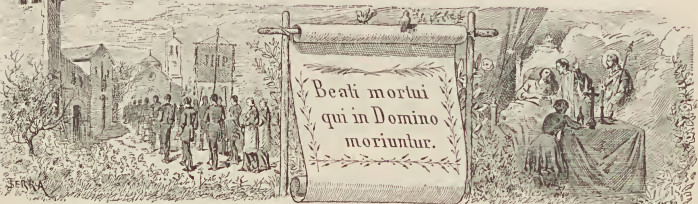 Beati mortui
qui in Domino
moriuntur.
SERRA